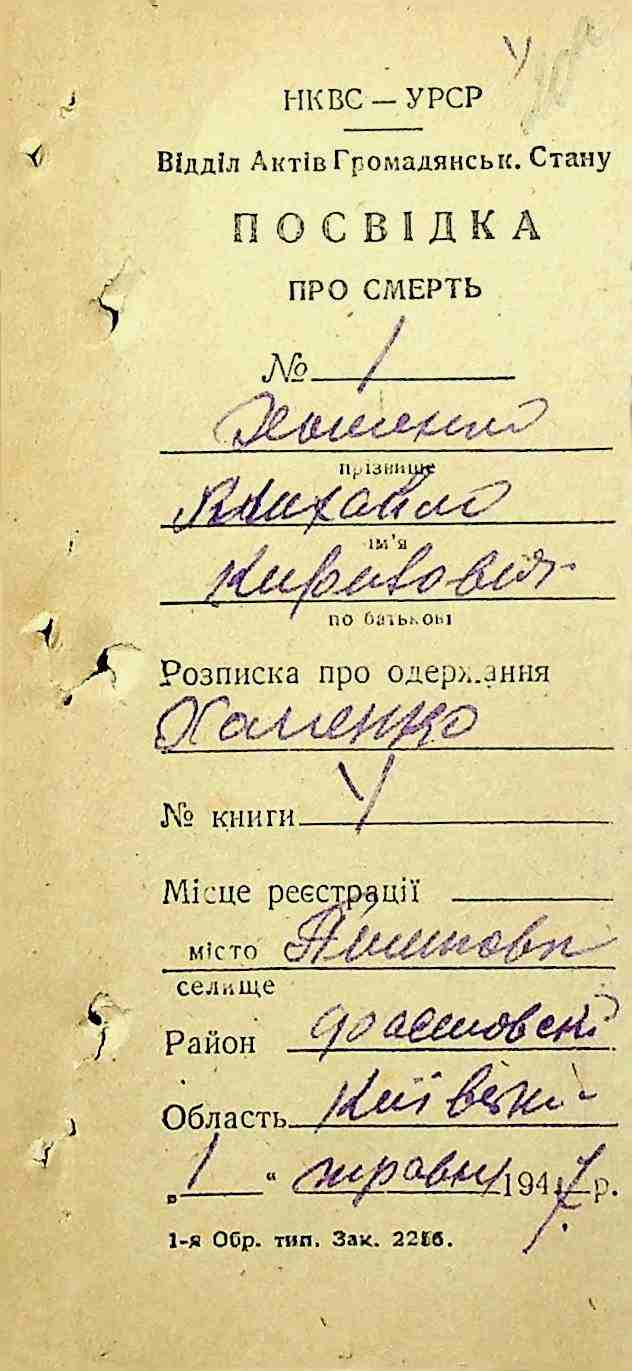 НКВС — УРСР
Відділ Актів Громадянськ. Стану
ПОСВІДКА
ПРО СМЕРТЬ
№ 1
Хоменко
прізвище
Михайло
ім'я
по батькові
Розписка про одержання
Хоменко
№ книги
Місце реєстрації
місто
селище
Район
Область Київські
„1“ травня 1947 р.
1-я Обр. тип. Зак.